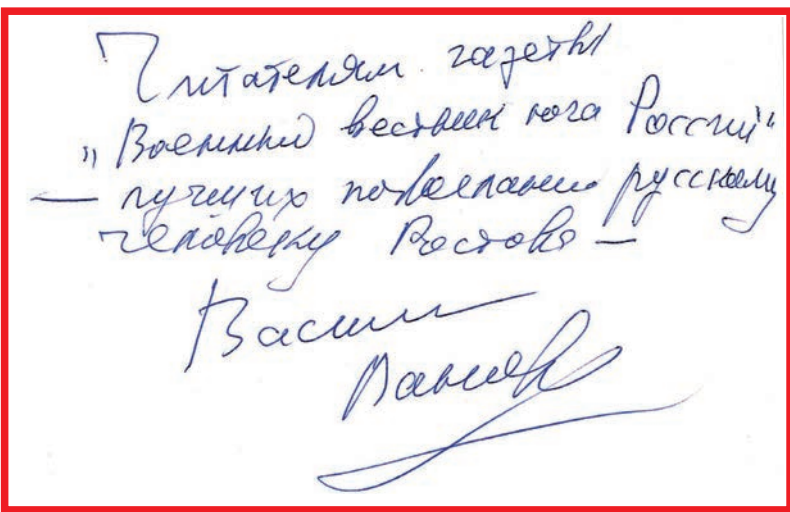 Читателям газеты
„Военный вестник юга России“
— лучших пожеланий русскому
человеку Ростова —
Василий